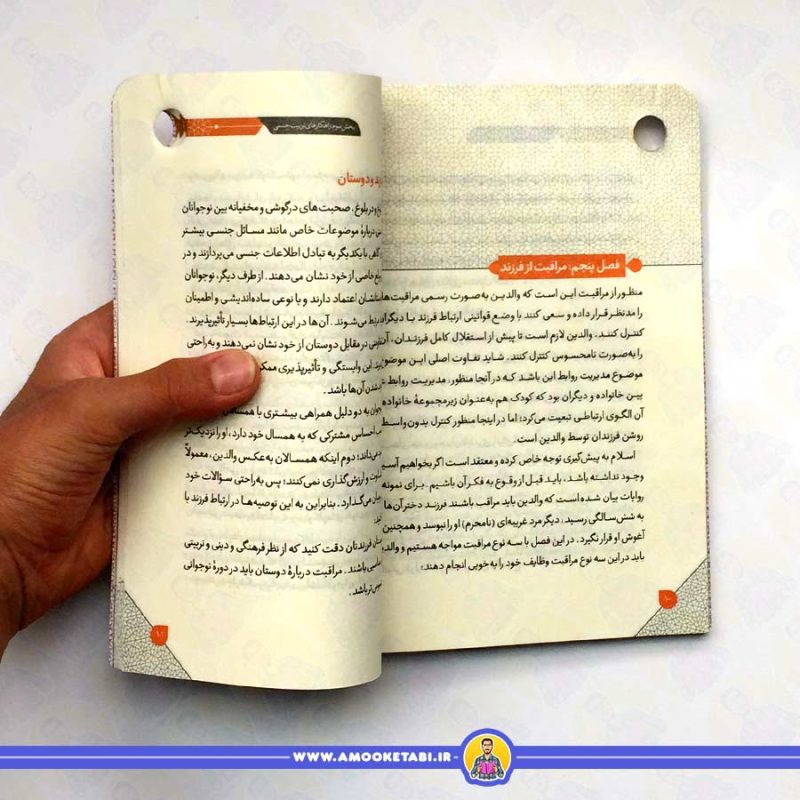 فصل پنجم: مراقبت از فرزند
منظور از مراقبت این است که والدین به‌صورت رسمی مراقبت‌ها
را مدنظر قرار داده و سعی کنند با وضع قوانینی ارتباط فرزند با دیگران
کنترل کنند. والدین لازم است تا پیش از استقلال کامل فرزندان، آن
را به‌صورت نامحسوس کنترل کنند. شاید تفاوت اصلی این موضوع
موضوع مدیریت روابط این باشد که در آنجا منظور، مدیریت روابط
بین خانواده و دیگران بود که کودک هم به‌عنوان زیرمجموعهٔ خانواده
آن الگوی ارتباطی تبعیت می‌کرد؛ اما در اینجا منظور کنترل بدون واسط
روشن فرزندان توسط والدین است.
اسلام به پیش‌گیری توجه خاص کرده و معتقد است اگر بخواهیم آسیـ
وجود نداشته باشد، باید قبل از وقوع به فکر آن باشیم. برای نمونه
روایات بیان شده است که والدین باید مراقب باشند فرزند دختر آن‌ها
به شش‌سالگی رسید، دیگر مرد غریبه‌ای (نامحرم) او را نبوسد و همچنین
آغوش او قرار نگیرد. در این فصل با سه نوع مراقبت مواجه هستیم و والد
باید در این سه نوع مراقبت وظایف خود را به‌خوبی انجام دهند:
۱۰۰
بخش سوم: راهکارهای تربیت جنسی
و دوستان
در بلوغ، صحبت‌های درگوشی و مخفیانه بین نوجوانان
دربارهٔ موضوعات خاص مانند مسائل جنسی بیشتر
با یکدیگر به تبادل اطلاعات جنسی می‌پردازند و در
خاصی از خود نشان می‌دهند. از طرف دیگر، نوجوانان
اعتماد دارند و با نوعی ساده‌اندیشی و اطمینان
می‌شوند. آن‌ها در این ارتباط‌ها بسیار تأثیرپذیرند.
در مقابل دوستان از خود نشان نمی‌دهند و به‌راحتی
این وابستگی و تأثیرپذیری
شدن آن‌ها باشد.
به دو دلیل همراهی بیشتری با
احساس مشترکی که به همسال خود دارد، او را نزدیک‌تر
دوم اینکه همسالان به‌عکس والدین، معمولاً
و ارزش‌گذاری نمی‌کنند؛ پس به‌راحتی سؤالات خود
می‌گذارد. بنابراین به این توصیه‌ها در ارتباط فرزند با
فرزندتان دقت کنید که از نظر فرهنگی و دینی و تربیتی
باشند. مراقبت دربارهٔ دوستان باید در دورهٔ نوجوانی
باشد.
۱۰۱
WWW.AMOOKETABI.IR